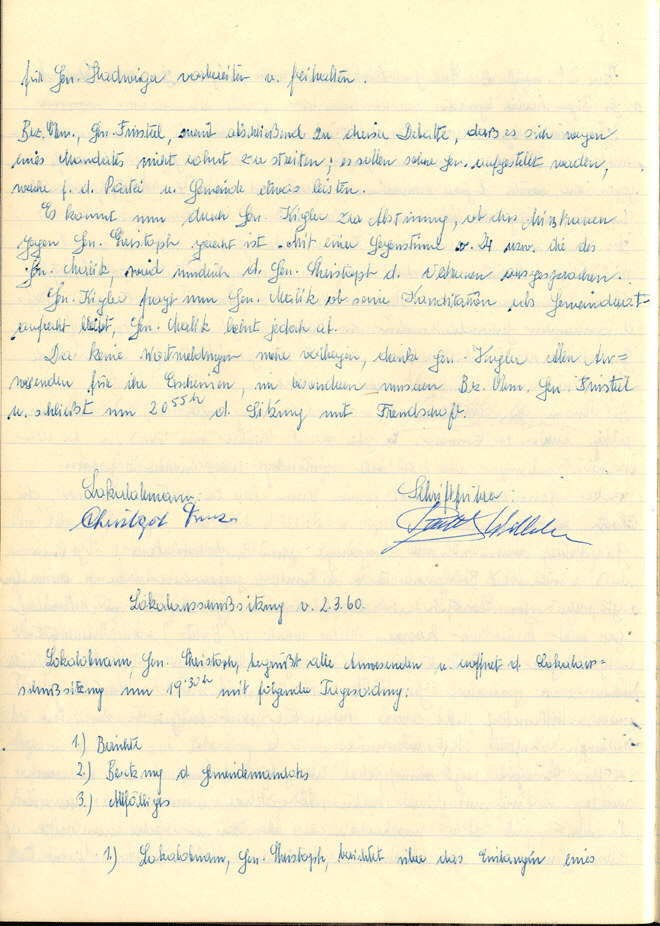 für Gen. Hadwiger vorbereiten u. freihalten.
Bez. Obm., Gen. Frustul, meint abschließend zu dieser Debatte, daß es sich wegen
eines Mandates nicht lohnt zu streiten; es sollen solche Gen. aufgestellt werden,
welche f. d. Partei u. Gemeinde etwas leisten.
Es kommt nun durch Gen. Kigler zur Abstimmung, ob das Mißtrauen
gegen Gen. Christoph gerecht ist. Mit einer Gegenstimme v. 24 usw. die des
Gen. Malik, wird hindurch d. Gen. Christoph d. Vertrauen ausgesprochen.
Gen. Kigler fragt nun Gen. Malik ob seine Kanditation als Gemeinderat
aufrecht bleibt, Gen. Malik lehnt jedoch ab.
Da keine Wortmeldungen mehr vorliegen, dankt Gen. Kigler allen An=
wesenden für ihr Erscheinen, im besonderen unseren Bez. Obm. Gen. Frustul
u. schließt um 20⁵⁵ʰ d. Sitzung mit Freundschaft.
Lokalobmann: Schriftführer:
Christoph
Lokalausschußsitzung v. 2.3.60.
Lokalobmann, Gen. Christoph, begrüßt alle Anwesenden u. eröffnet d. Lokalaus=
schußsitzung um 19³⁰ʰ mit folgender Tagesordnung:
1.) Berichte
2.) Besetzung d Gemeindemandats
3.) Allfälliges
1.) Lokalobmann, Gen. Christoph, berichtet über das Einlangen eines